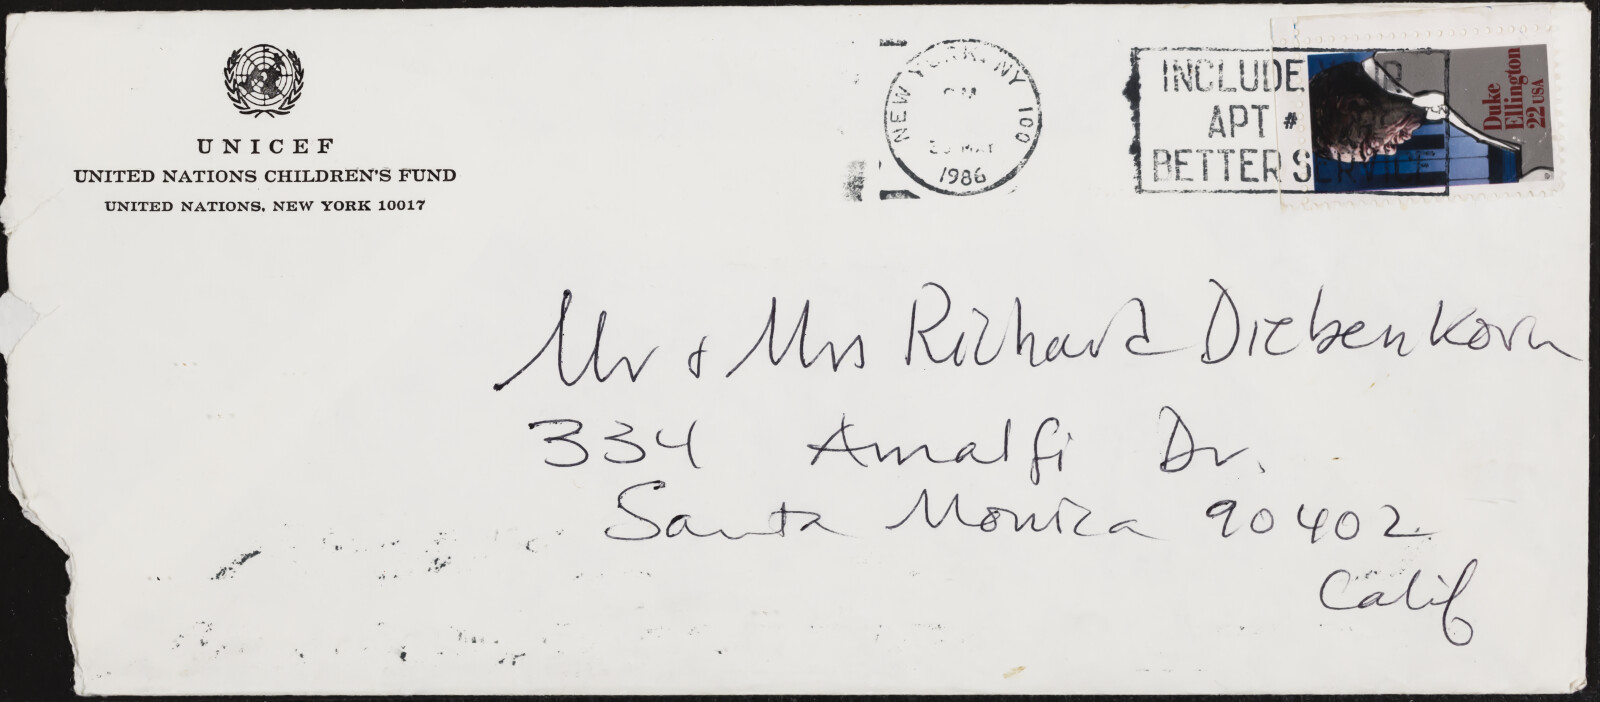 UNICEF
UNITED NATIONS CHILDREN'S FUND
UNITED NATIONS, NEW YORK 10017
NEW YORK, NY 100
PM
MAY
1986
INCLUDE YOUR
APT #
BETTER SERVICE
Duke
Ellington
22 USA
Mr & Mrs Richard Diebenkorn
334 Amalfi Dr.
Santa Monica 90402
Calif